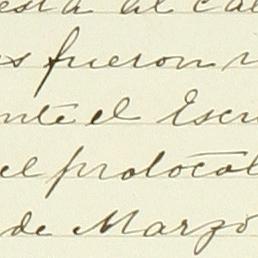 esta al cal
s fueron
nte el Escr
el protocol
de Marzo